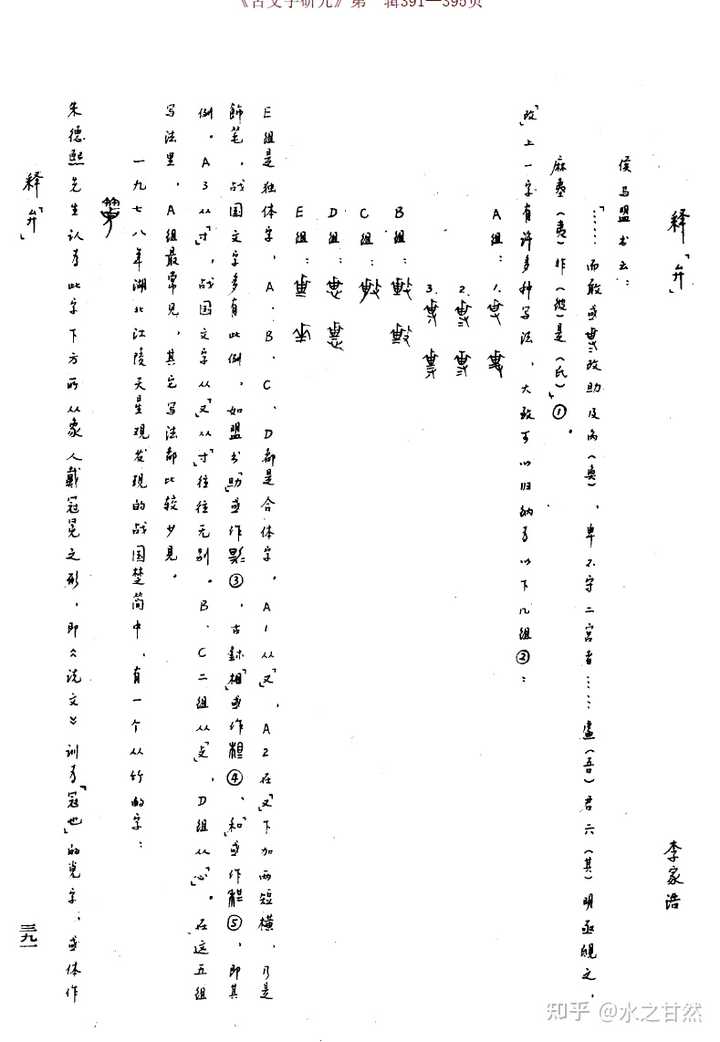 《古文字研究》第一辑391—395页
释「弁」
李家浩
侯马盟书云：
「……而敢或改助及奂（奂），卑不守二宫者……盧（吾）君六（其）明亟䚈之，
麻夷（夷）非（彼）是（氏）」①。
「改」上一字有许多种写法，大致可以归纳为以下几组②：
A组：1.
2.
3.
B组：
C组：
D组：
E组：
E组是独体字，A、B、C、D都是合体字。A1从「又」，A2在「又」下加两短横，乃是
饰笔，战国文字多有此例，如盟书「助」或作③，古鉥「相」或作④，「和」或作⑤，即其
例。A3从「寸」，战国文字从「又」从「寸」往往无别。B、C二组从「攴」，D组从「心」。在这五组
写法里，A组最常见，其它写法都比较少见。
一九七八年湖北江陵天星观发现的战国楚简中，有一个从竹的字：
朱德熙先生认为此字下方所从象人戴冠冕之形，即《说文》训为「冠也」的覍字，或体作
释「弁」
三九一
知乎 @水之甘然